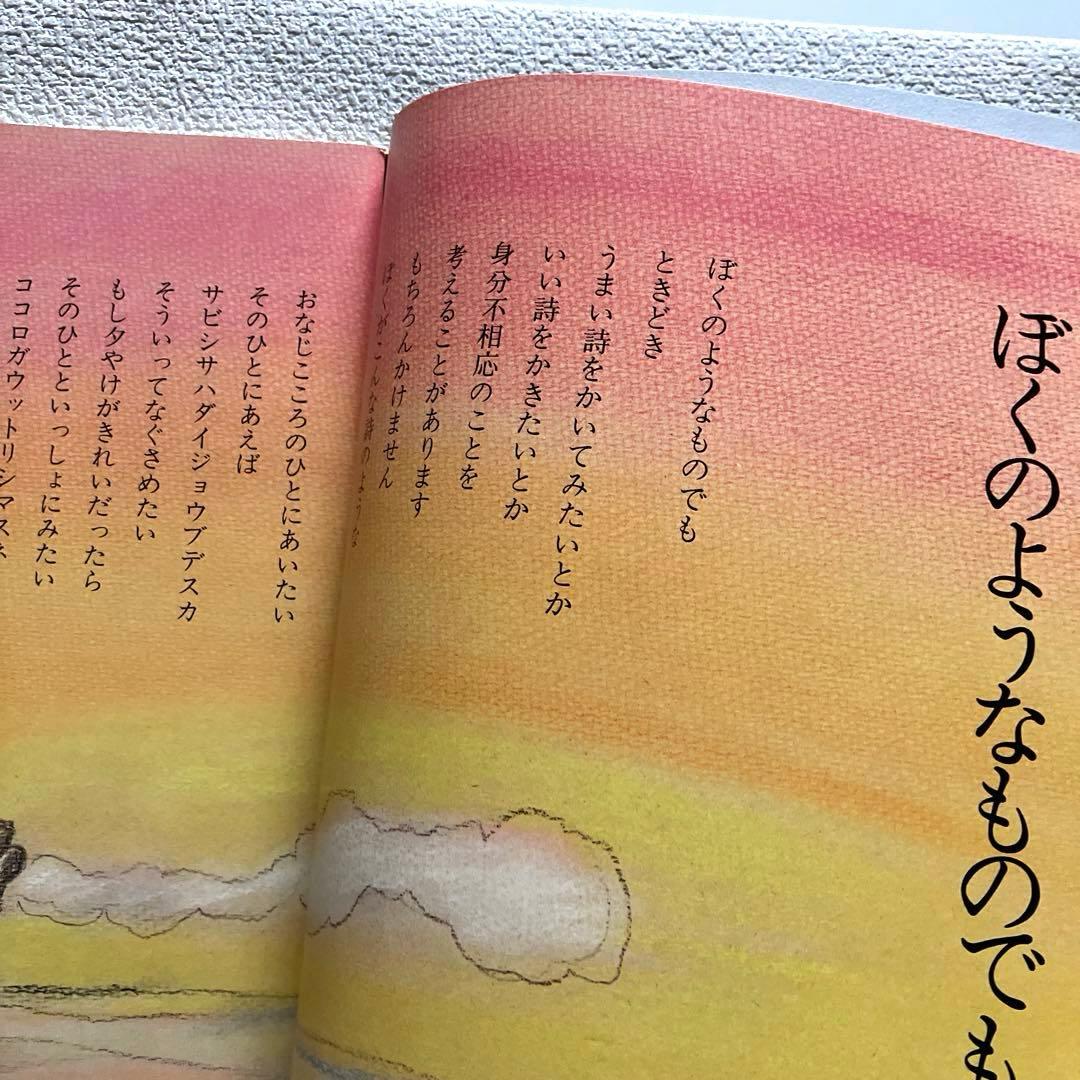 ぼくのようなものでも
ぼくのようなものでも
ときどき
うまい詩をかいてみたいとか
いい詩をかきたいとか
身分不相応のことを
考えることがあります
もちろんかけません
ぼくがこんな詩のような
おなじこころのひとにあいたい
そのひとにあえば
サビシサハダイジョウブデスカ
そういってなぐさめたい
もし夕やけがきれいだったら
そのひとといっしょにみたい
ココロガウットリシマスネ